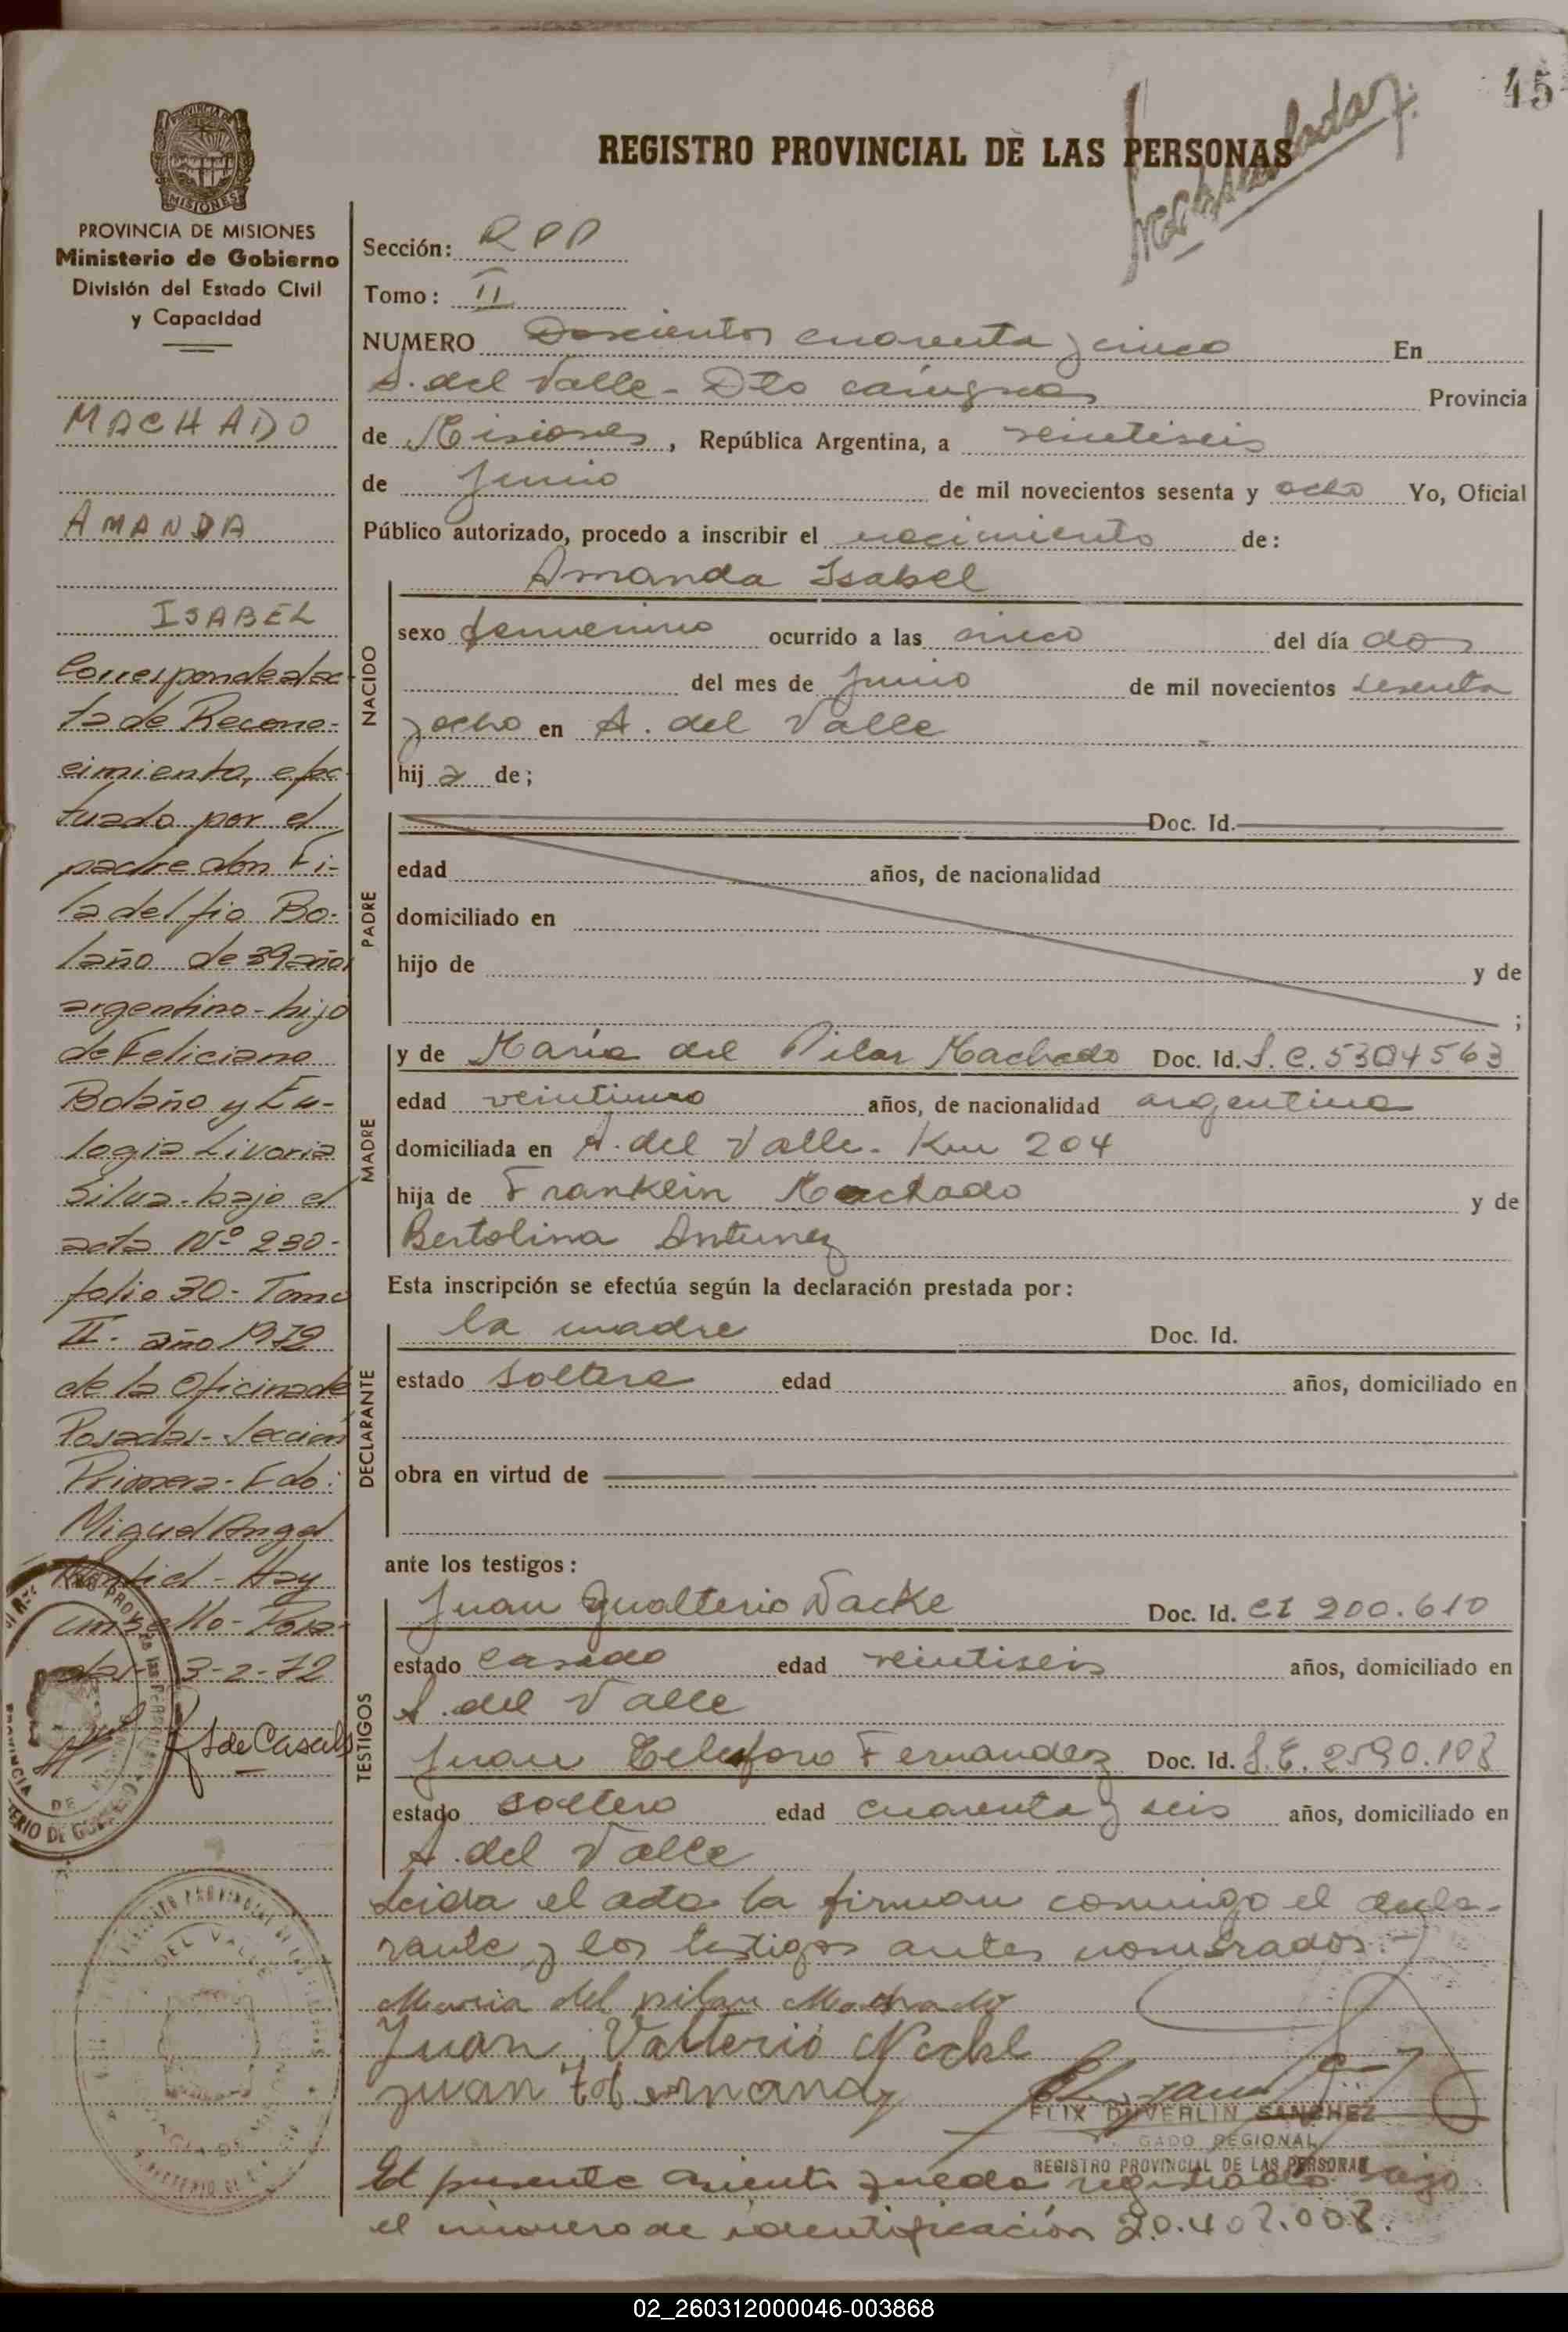 45
REGISTRO PROVINCIAL DE LAS PERSONAS
PROVINCIA DE MISIONES
Ministerio de Gobierno
División del Estado Civil
y Capacidad
MACHADO
AMANDA
ISABEL
Corresponde al ac
ta de Recono-
cimiento, efec
tuado por el
padre don Fi-
ladelfio Bo-
laño de 39 años
argentino - hijo
de Feliciano
Bolaño y Eu-
logia Livoria
Silva - bajo el
acta Nº 230 -
folio 30 - Tomo
II - año 1972
de la Oficina de
Posadas - Sección
Primera - Fdo:
Miguel Angel
Montiel - Hay
un sello - Posa-
das - 3-2-72
Sección: RPP
Tomo: II
NUMERO Doscientos cuarenta y cinco En
A. del Valle - Dto cainguas Provincia
de Misiones, República Argentina, a veintiseis
de Junio de mil novecientos sesenta y ocho Yo, Oficial
Público autorizado, procedo a inscribir el nacimiento de:
NACIDO
Amanda Isabel
sexo femenino ocurrido a las cinco del día dos
del mes de Junio de mil novecientos sesenta
y ocho en A. del Valle
hija de;
PADRE
Doc. Id.
edad años, de nacionalidad
domiciliado en
hijo de y de
;
MADRE
y de María del Pilar Machado Doc. Id. L.C. 5304563
edad veintiuno años, de nacionalidad argentina
domiciliada en A. del Valle - Km 204
hija de Franklin Machado y de
Bertolina Antunez
Esta inscripción se efectúa según la declaración prestada por:
DECLARANTE
la madre Doc. Id.
estado soltera edad años, domiciliado en
obra en virtud de
ante los testigos:
TESTIGOS
Juan Gualterio Nacke Doc. Id. CI 200.610
estado casado edad veintiseis años, domiciliado en
A. del Valle
Juan Telesforo Fernandez Doc. Id. L.E. 2590.108
estado soltero edad cuarenta y seis años, domiciliado en
A. del Valle
Leida el acta la firman conmigo el decla-
rante y los testigos antes nombrados.-
Maria del pilar Machado
Juan Valterio
Juan T Fernandz
SANCHEZ
GADO REGIONAL
REGISTRO PROVINCIAL DE LAS PERSONAS
El presente asiento queda registrado bajo
el número de identificación 20.407.008.
02_260312000046-003868